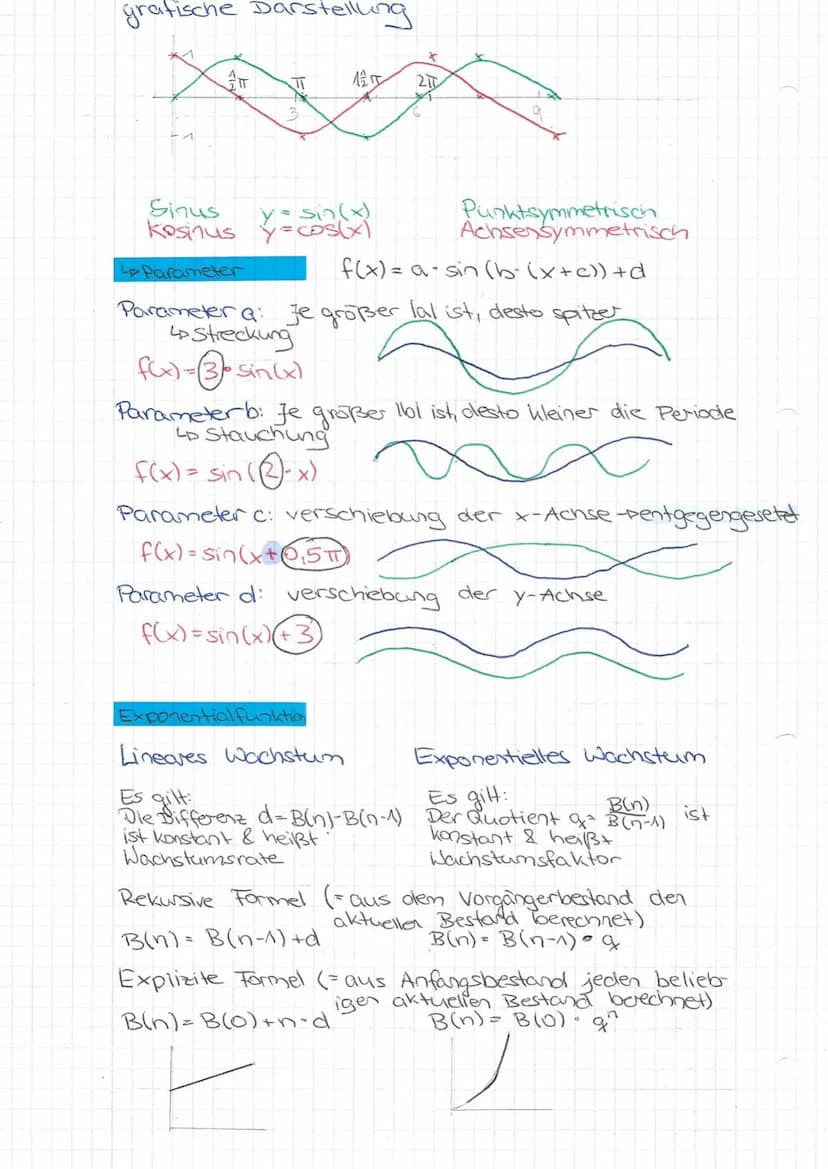 grafische Darstellung
1
½π π 1½π 2π
3 6 9
-1
Sinus y = sin(x) Punktsymmetrisch
Kosinus y = cos(x) Achsensymmetrisch
↳ Parameter f(x) = a · sin (b · (x+c)) + d
Parameter a: Je größer |a| ist, desto spitzer
↳ Streckung
f(x) = 3 · sin(x)
Parameter b: Je größer |b| ist, desto kleiner die Periode
↳ Stauchung
f(x) = sin(2 · x)
Parameter c: verschiebung der x-Achse → entgegengesetzt
f(x) = sin(x + 0,5π)
Parameter d: verschiebung der y-Achse
f(x) = sin(x) + 3
Exponentialfunktion
Lineares Wachstum Exponentielles Wachstum
Es gilt: Es gilt:
Die Differenz d = B(n) - B(n-1) Der Quotient q = B(n)/B(n-1) ist
ist konstant & heißt konstant & heißt
Wachstumsrate Wachstumsfaktor
Rekursive Formel (= aus dem Vorgängerbestand den
aktuellen Bestand berechnet)
B(n) = B(n-1) + d B(n) = B(n-1) · q
Explizite Formel (= aus Anfangsbestand jeden belieb-
igen aktuellen Bestand berechnet)
B(n) = B(0) + n · d B(n) = B(0) · qⁿ